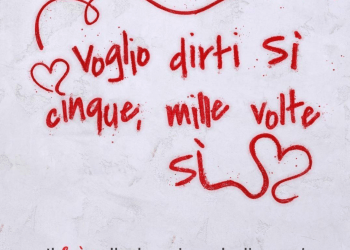 Voglio dirti sì
cinque, mille volte
sì